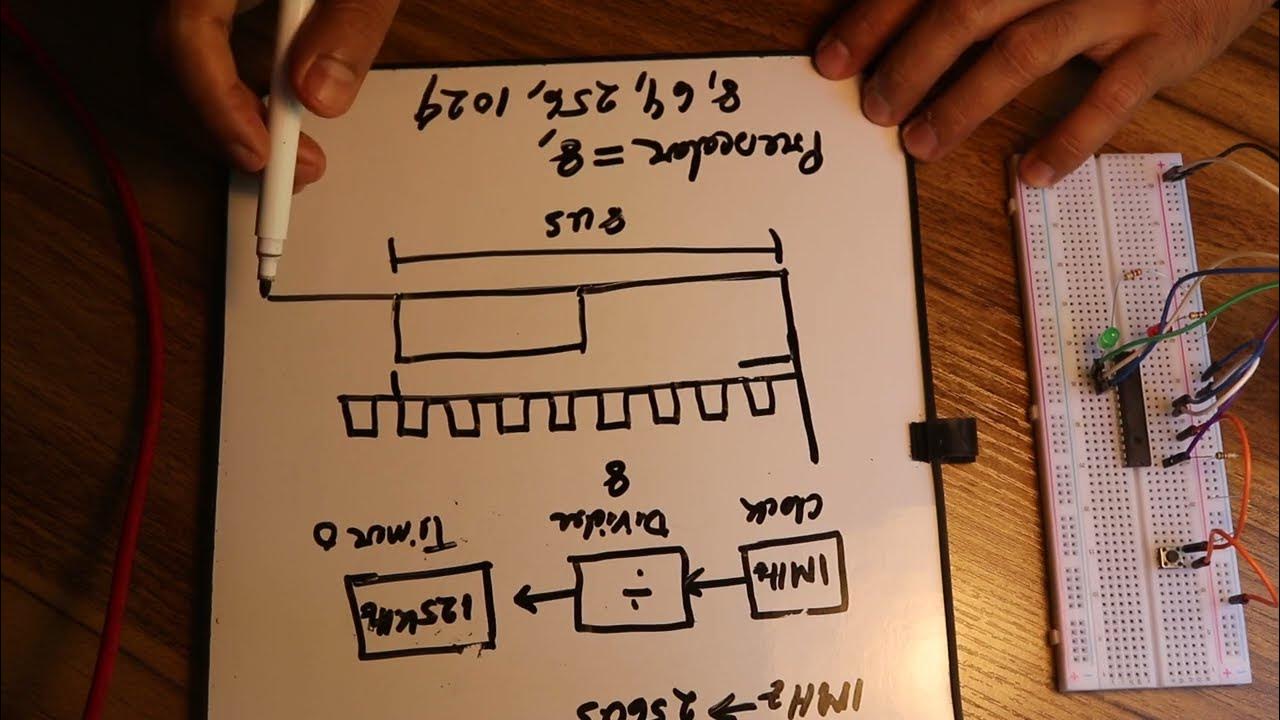 1MHz → 256us
1MHz ÷ 125KHz
Clock Divider Timer 0
8
8us
Prescalar = 8,
8, 64, 256, 1024